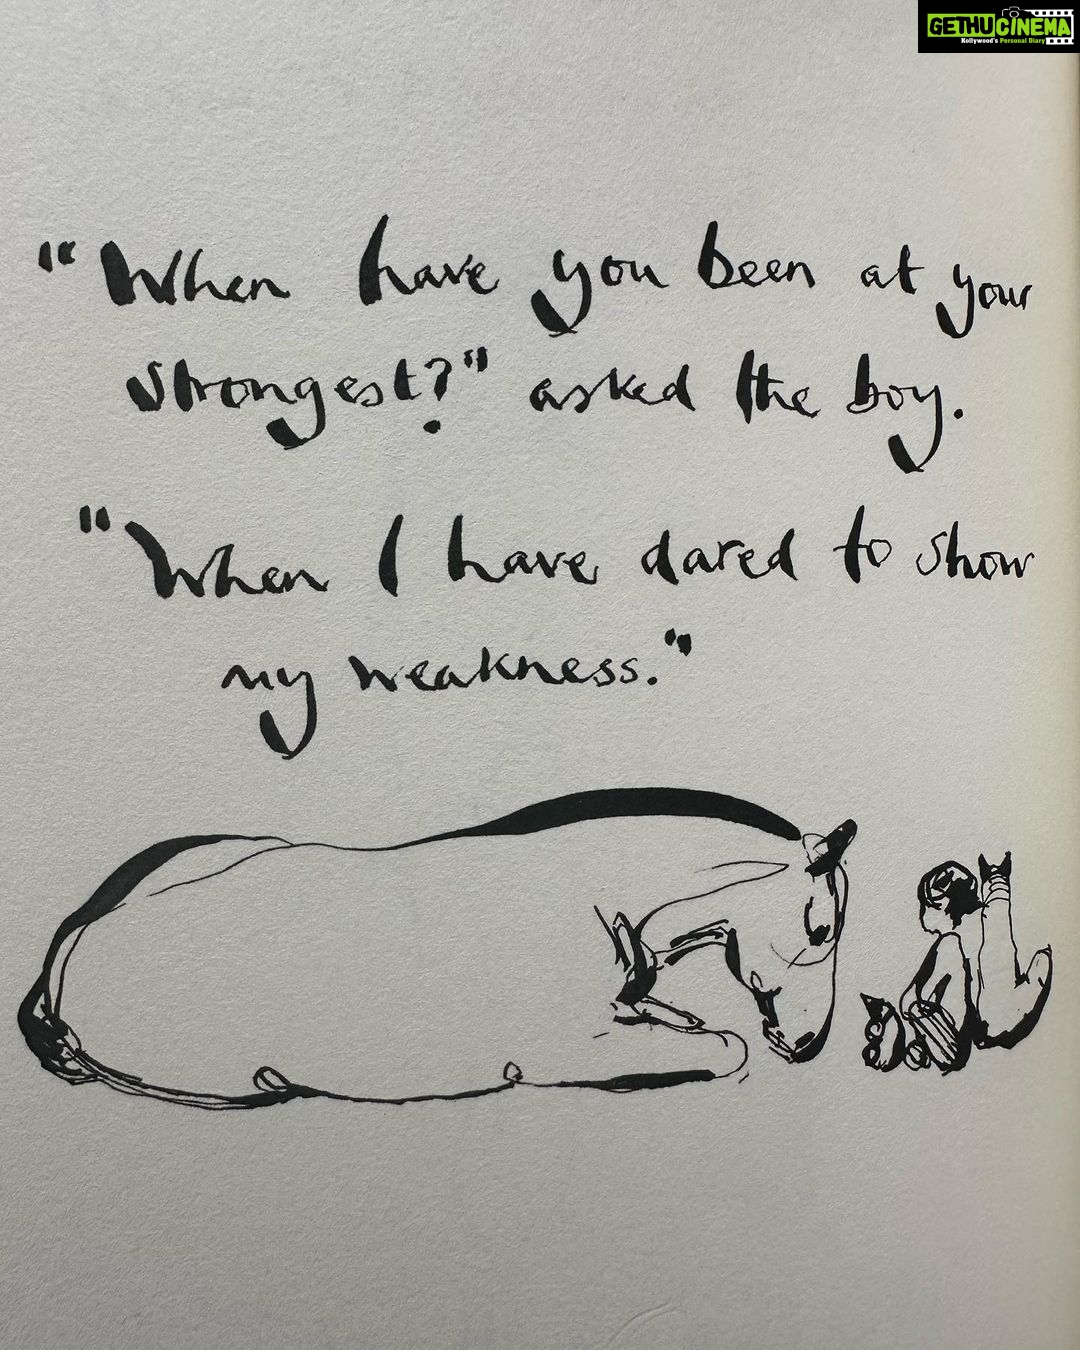 GETHUCINEMA
Kollywood's Personal Diary
"When have you been at your
strongest?" asked the boy.
"When I have dared to show
my weakness."